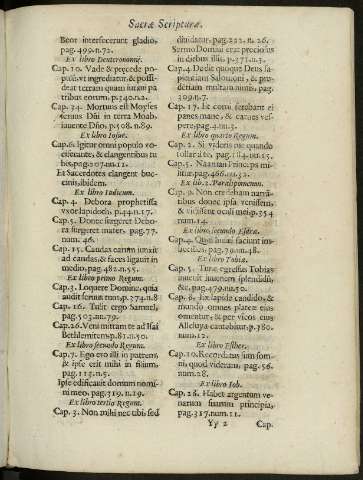 Sacræ Scripturæ.
Beor interfecerunt gladio,
pag. 499.n.72.
Ex libro Deuteronomii.
Cap. 10. Vade & præcede po-
pulum, vt ingrediatur, & possi-
deat terram quam iuraui pa-
tribus eorum. p.340.n.2.
Cap. 34. Mortuus est Moyses
seruus Dñi in terra Moab,
iubente Dño. p.508.n.89.
Ex libro Iosue.
Cap.6. Igitur omni populo vo-
ciferante, & clangentibus tu-
bis. pag.207.nu.11.
Et Sacerdotes clangent buc-
cinis, ibidem.
Ex libro Iudicum.
Cap. 4. Debora prophetissa
vxor Lapidoth. p.44.n.17.
Cap. 5. Donec surgeret Debo-
ra surgeret mater. pag.77.
num. 46.
Cap. 15. Caudas earum iunxit
ad caudas, & faces ligauit in
medio. pag.482.n.55.
Ex libro primo Regum.
Cap.3. Loquere Domine, quia
audit seruus tuus. p.374.n.8
Cap. 16. Tulit ergo Samuel,
pag.503.nu.79.
Cap.26. Veni mittam te ad Isai
Bethlemitem. p.87.n.50.
Ex libro secundo Regum.
Cap.7. Ego ero illi in patrem,
& ipse erit mihi in filium,
pag.115.n.5.
Ipse edificauit domum nomi-
ni meo. pag.319.n.19.
Ex libro tertio Regum.
Cap. 3. Non mihi nec tibi, sed
diuidatur. pag.292.n. 26.
Sermo Domini erat preciosus
in diebus illis. p.371.n.3.
Cap.4. Dedit quoque Deus sa-
pientiam Salomoni, & pru-
dentiam multam nimis, pag.
309.n.7.
Cap. 17. Et corui ferebant ei
panes mane, & carnes ves-
pere. pag.4.nu.3.
Ex libro quarto Regum.
Cap. 2. Si videris me quando
tollar à te, pag.184.nu.25.
Cap. 5. Naaman Princeps mi-
litiæ. pag.466.nu.32.
Ex lib. 2. Paralipomenon.
Cap. 9. Non credebam narran-
tibus donec ipsa venissem,
& vidissent oculi mei. p.354
num.14.
Ex libro secundo Esdræ.
Cap.4. Quid Iudæi faciunt im-
becilles. pag.79.nu.48.
Ex libro Tobiæ.
Cap. 5. Tunc egressus Tobias
inuenit iuuenem splendidũ,
&c. pag.479.nu.50.
Cap. 8. Ex lapide candido, &
mundo omnes plateæ eius
&c. & per vicos eius
Alleluya cantabitur. p.380.
num.12.
Ex libro Esther.
Cap.10. Recordatus sum som-
ni, quod videram, pag.56.
num.28.
Ex libro Iob.
Cap. 26. Habet argentum ve-
narum suarum principia,
pag.317.num.11.
Yy 2 Cap.